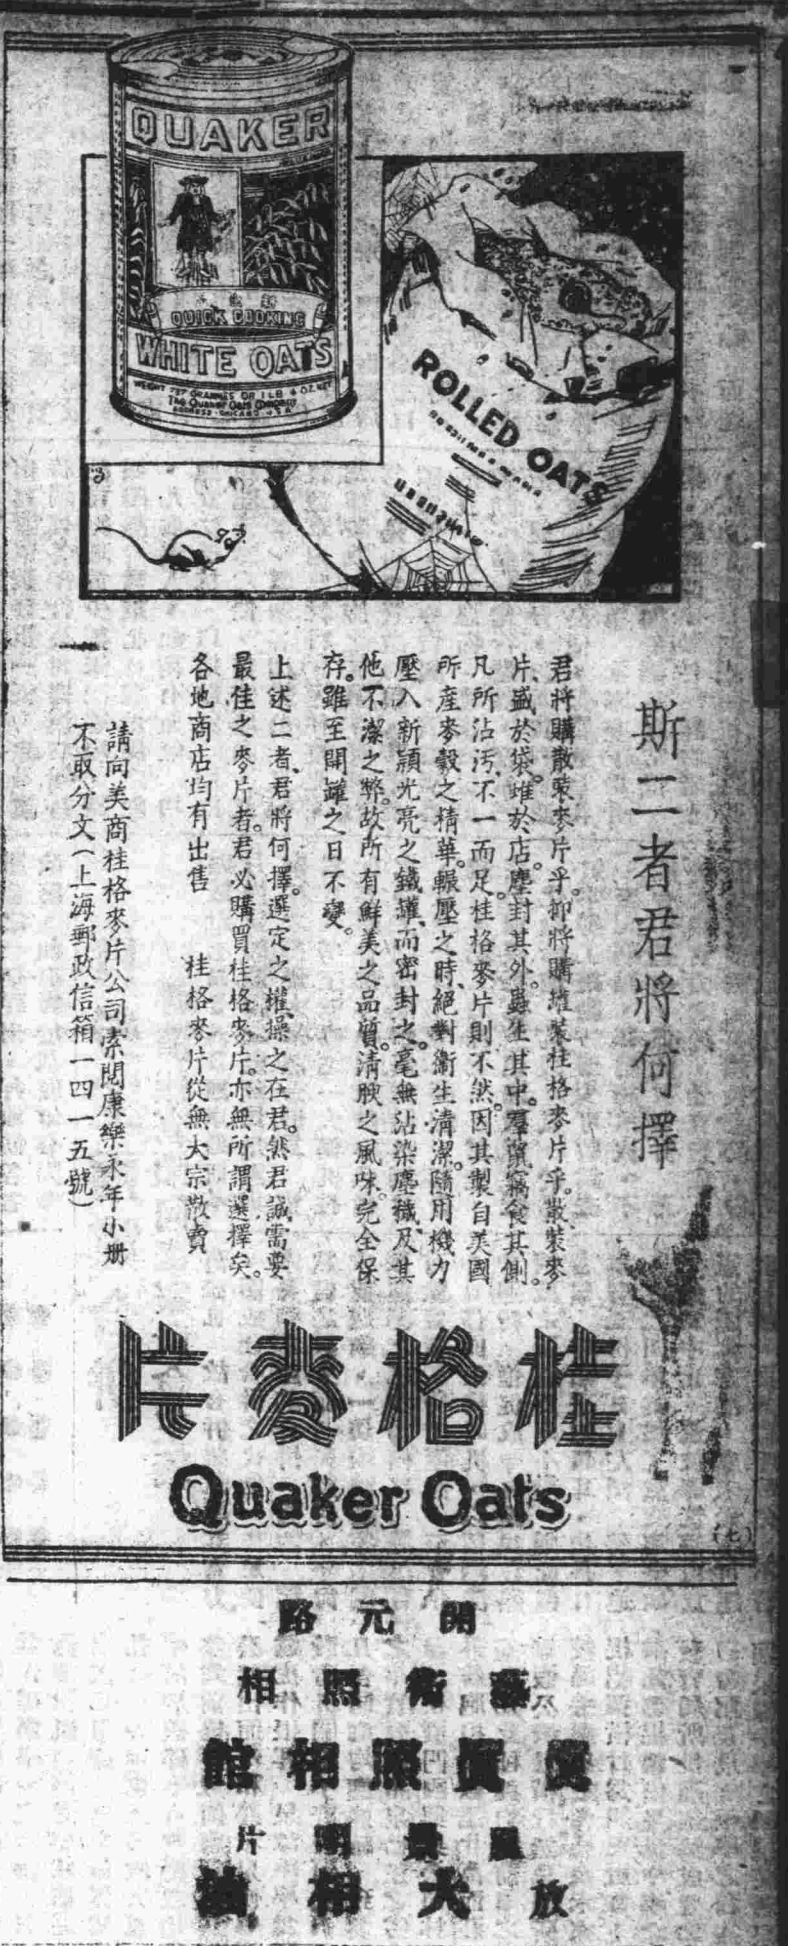 QUAKER
QUICK COOKING
WHITE OATS
WEIGHT 737 GRAMMES OR 1 LB 4 OZ. NET
The Quaker Oats Company
ADDRESS · CHICAGO, U.S.A.
ROLLED OATS
斯二者君將何擇
君將購散裝麥片乎。抑將購罐裝桂格麥片乎。散裝麥
片、盛於袋。堆於店。塵封其外。蟲生其中。羣鼠竊食其側。
凡所沾污、不一而足。桂格麥片則不然。因其製自美國
所產麥穀之精華。輾壓之時、絕對衞生清潔。隨用機力
壓入新穎光亮之鐵罐、而密封之。毫無沾染塵穢及其
他不潔之弊。故所有鮮美之品質。清腴之風味。完全保
存。雖至開罐之日不變。
上述二者、君將何擇。選定之權、操之在君。然君誠需要
最佳之麥片者。君必購買桂格麥片。亦無所謂選擇矣。
各地商店均有出售 桂格麥片從無大宗散賣
請向美商桂格麥片公司索閱康樂永年小册
不取分文(上海郵政信箱一四一五號)
桂格麥片
Quaker Oats
(七)
開元路
藝術照相
眞照相館
風景明片
放大相